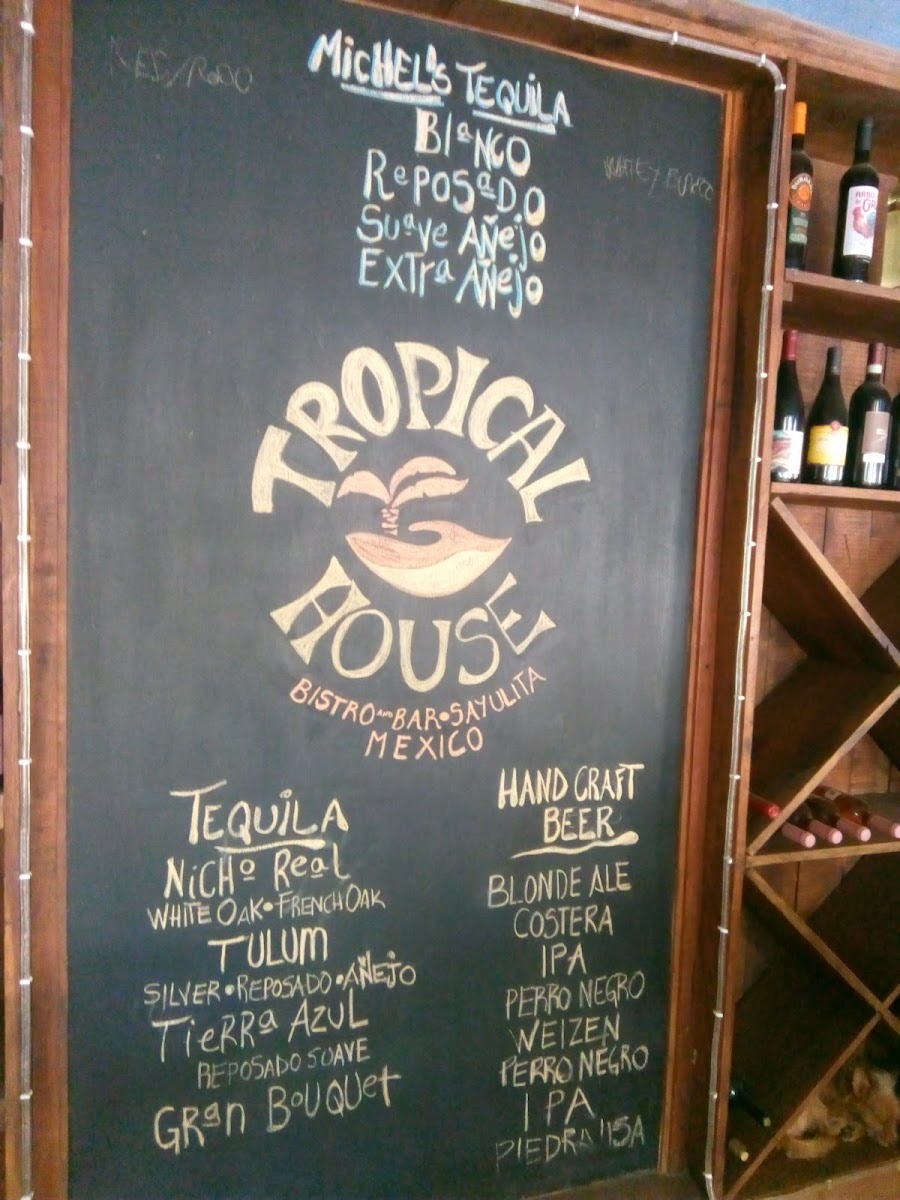 MICHEL'S TEQUILA
BlaNCO
RePOSaDO
Suave AÑejo
EXTRa AÑejo
TROPICAL
HOUSE
BISTRO AND BAR • SAYULITA
MEXICO
TEQUILA
NiCHo Real
WHITE OAK • FRENCH OAK
TULUM
SILVER • REPOSADO • AÑEJO
TiERRa AZUL
REPOSADO SUAVE
GRan BOUQUET
HAND CRAFT
BEER
BLONDE ALE
COSTERA
IPA
PERRO NEGRO
WEIZEN
PERRO NEGRO
IPA
PIEDRA LISA